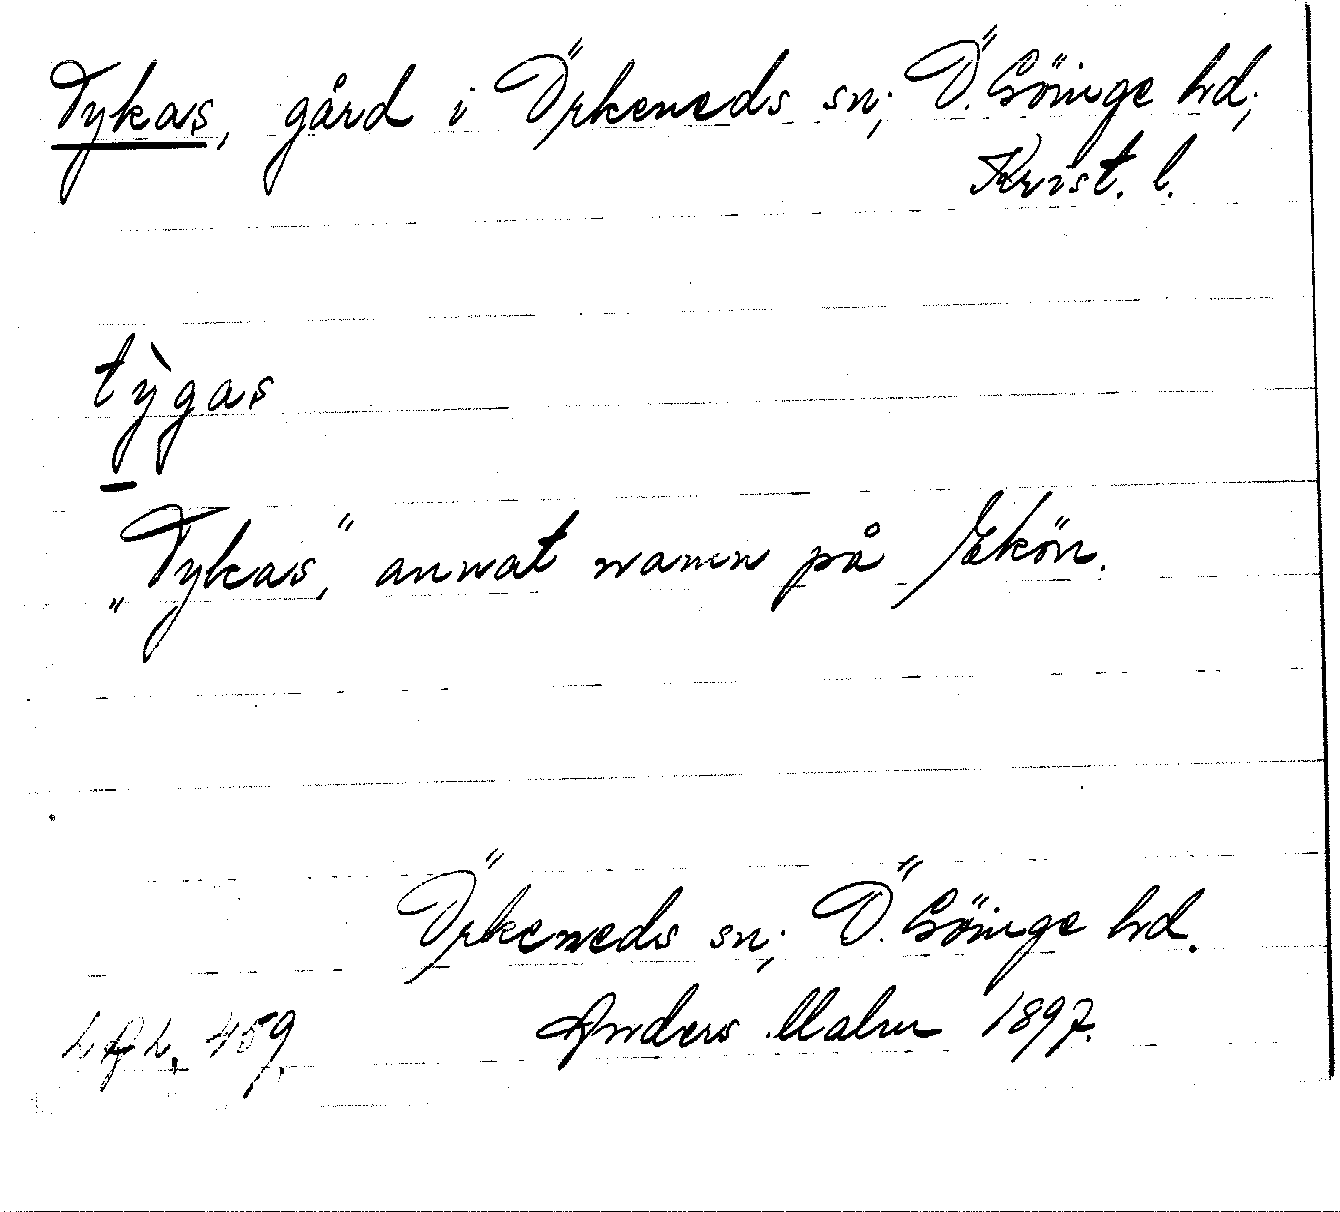 Tykas, gård i Örkeneds sn; Ö. Göinge hd;
Krist. l.
tỳgas
„Tykas,” annat namn på Ekön.
Örkeneds sn; Ö. Göinge hd.
459. Anders Malm 1897.